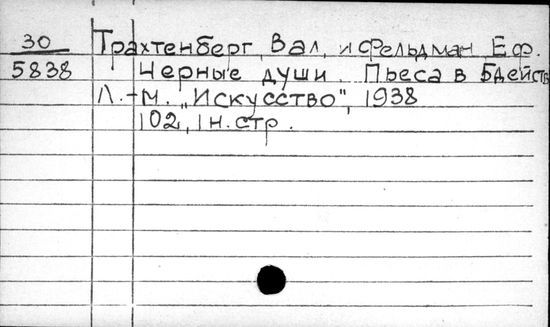 30 Трахтенберг, Вал. и Фельдман Еф.
5838 Черные души. Пьеса в 5 действ
Л.-М. „Искусство", 1938
102, 1 н. стр.